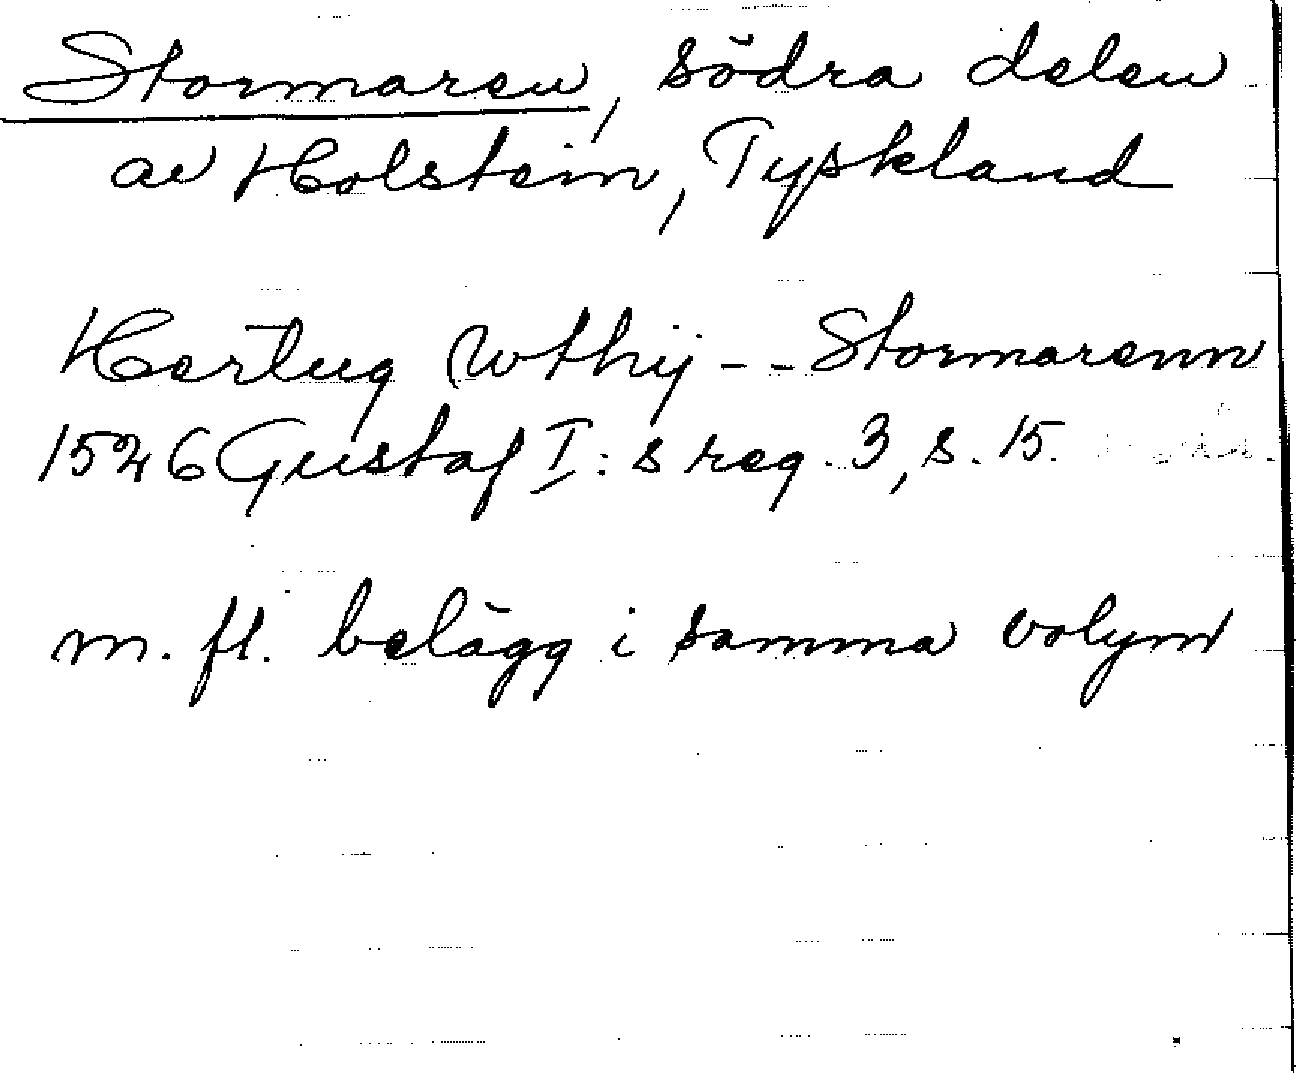 Stormaren, södra delen
av Holstein, Tyskland
Hertug wthij -- Stormarenn
1526 Gustaf I:s reg. 3, s. 15.
m. fl. belägg i samma volym